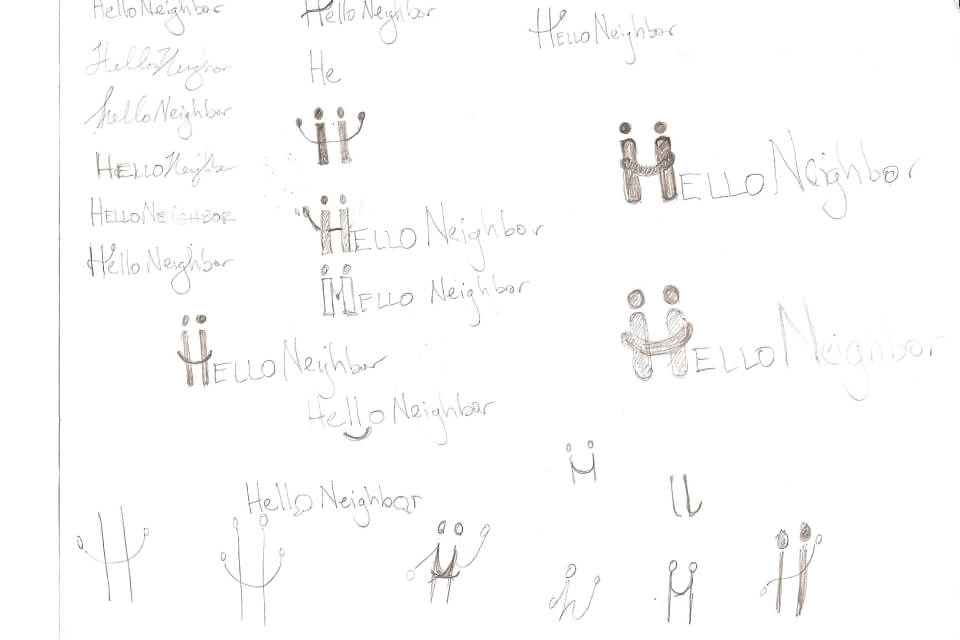 Hello Neighbor
Hello Neighbor
Hello Neighbor
Hello Neighbor
He
Hello Neighbor
HELLO Neighbor
HELLO Neighbor
HELLO NEIGHBOR
HELLO Neighbor
Hello Neighbor
HELLO Neighbor
HELLO Neighbor
HELLO Neighbor
HELLO Neighbor
Hello Neighbor
Hello Neighbor